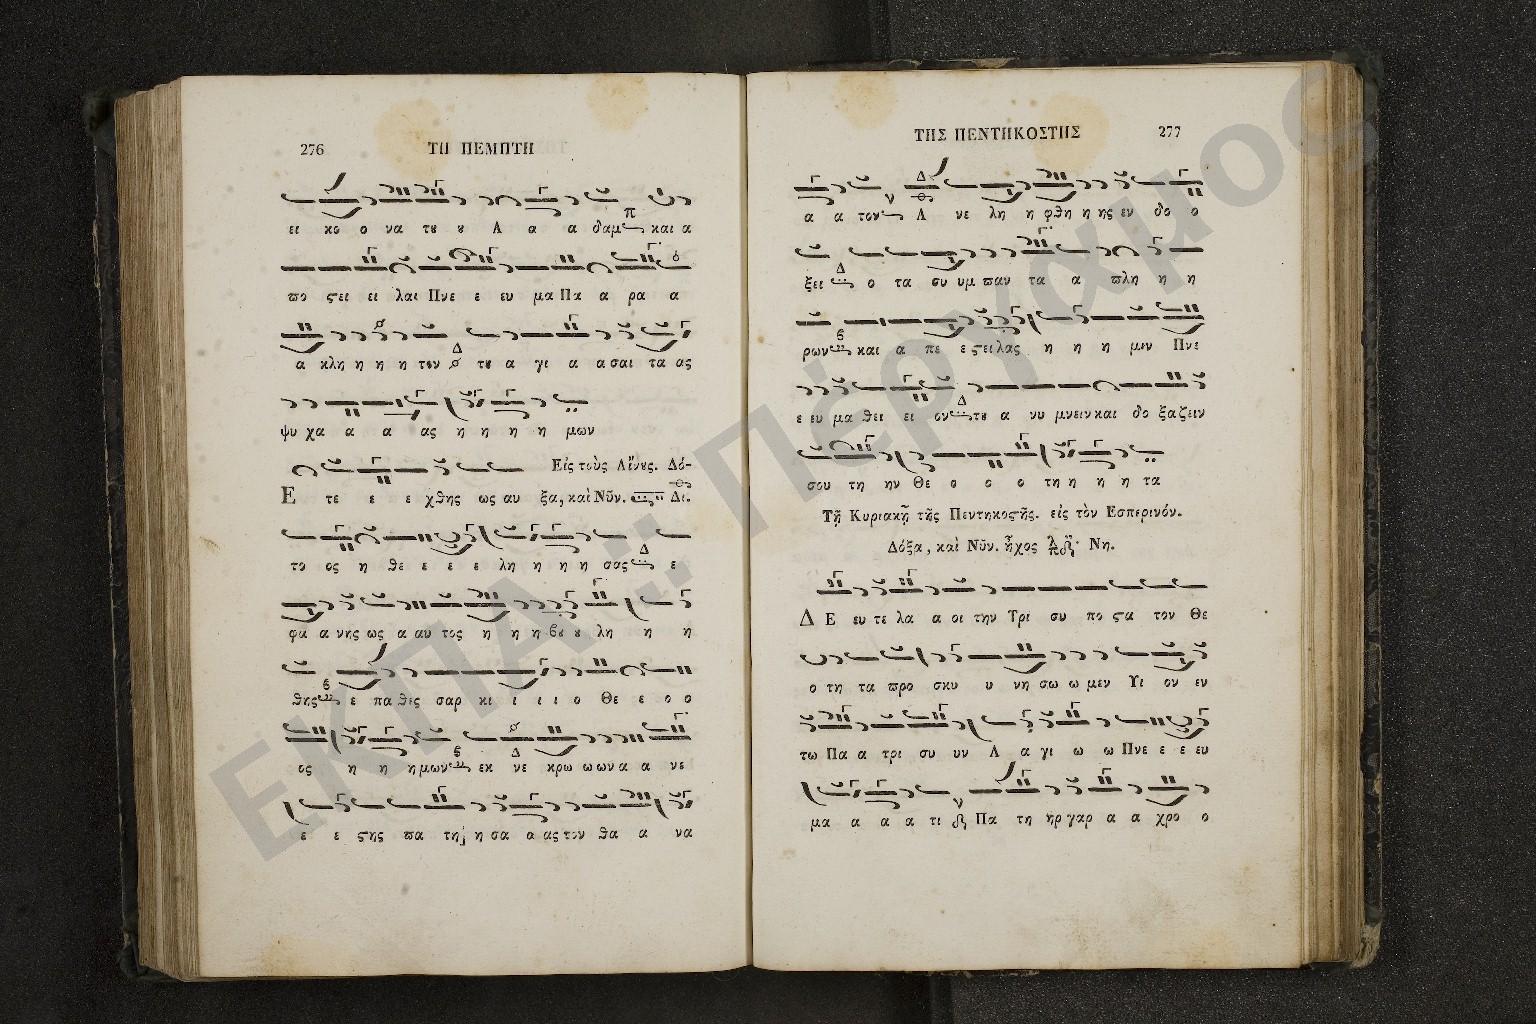 276 ΤΗ ΠΕΜΠΤΗ
ει κο ο να τȣ ȣ Α α α δαμ π και α
πο ϛει ει λαι Πνε ε ευ μα Πα α ρα α
α κλη η η η τον Δ τȣ α γι α α σαι τα ας
ψυ χα α α ας η η η η μων
Εἰς τοὺς Αἴνȣς. Δό-
Ε τε ε ε χθης ως αυ ξα, καὶ Νῦν. Δι.
το ος η θε ε ε ε λη η η η σας Δ ε
φα α νης ως α αυ τος η η η βȣ ȣ λη η η
θης ε πα θες σαρ κι ι ι ι ο Θε ε ο ο
ος η η η μων εκ Δ νε κρω ω ων α α νε
ε ε ϛης πα τη η σα α ας τον θα α να
ΤΗΣ ΠΕΝΤΗΚΟΣΤΗΣ 277
α α τον Δ Α νε λη η φθη η ης εν δο ο
ξει Δ ο τα συ υμ παν τα α πλη η η
ρων και α πε ε ϛει λας η η η μιν Πνε
ε ευ μα θει ει ον Δ τȣ α νυ μνειν και δο ξα ζειν
σου τη ην Θε ο ο ο τη η η η τα
Τῇ Κυριακῇ τῆς Πεντηκοϛῆς. εἰς τὸν Εσπερινόν.
Δόξα, καὶ Νῦν. ἦχος λ π δ Νη.
Δ Ε ευ τε λα α οι την Τρι συ πο ϛα τον Θε
ο τη τα προ σκυ υ νη σω ω μεν Υι ον εν
τω Πα α τρι συ υν Α α γι ω ω Πνε ε ε ευ
μα α α α τι Πα τη ηρ γαρ α α χρο ο
ΕΚΠΑ :: Πέργαμος